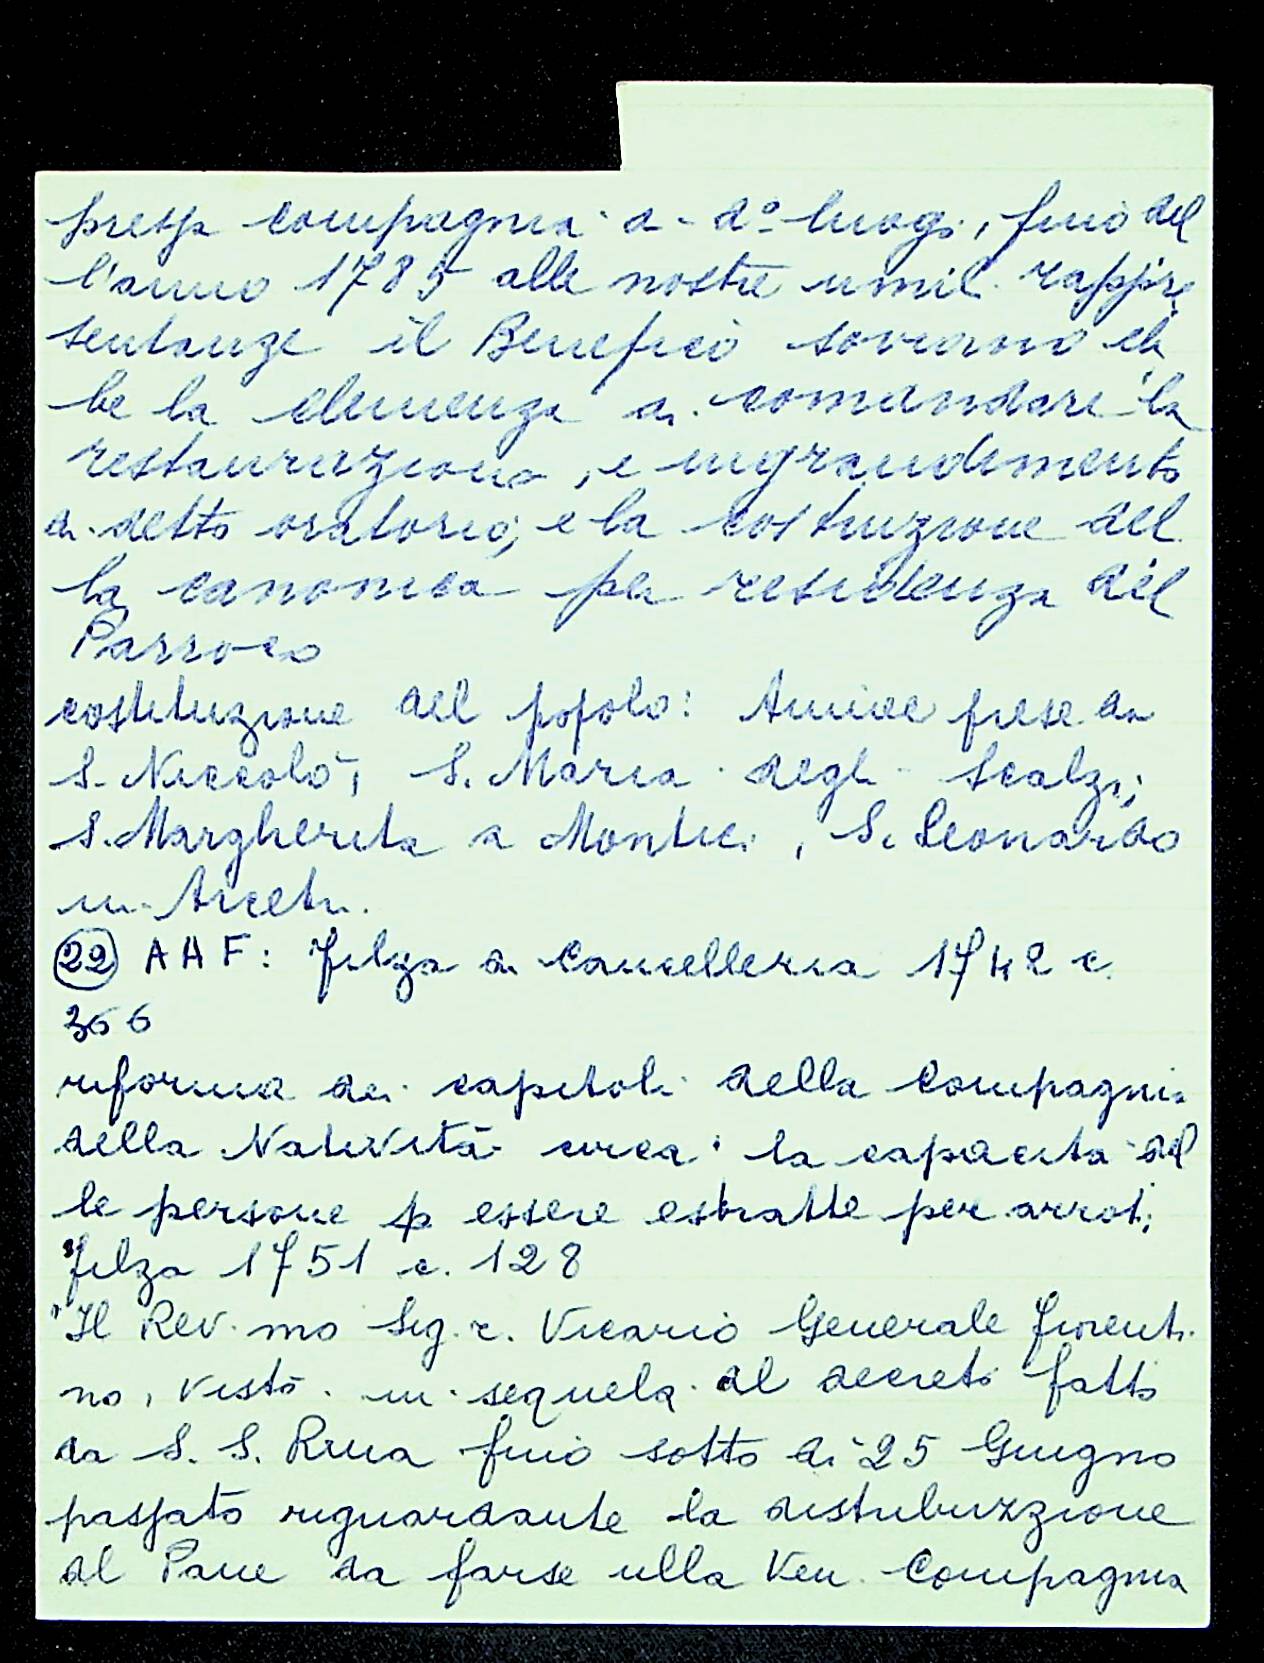 pressa compagnia di d.º luogo, fino del
l'anno 1785 alle nostre umil. rappre
sentanze il Benefico sovrano eb
be la clemenza di comandare la
restaurazione, e ingrandimento
di detto oratorio, e la costruzione del
la canonica per residenza del
Parroco
costituzione del popolo: Anime prese da
S. Niccolò, S. Maria degli Scalzi,
S. Margherita a Montici, S. Leonardo
in Arcetri.
(22) AAF: Filza di Cancelleria 1742 c.
366
riforma dei capitoli della Compagnia
della Natività circa la capacita del
le persone p essere estratte per arroti;
filza 1751 c. 128
"Il Rev.mo Sig.r. Vicario Generale fiorenti
no, visto in sequela al decreto fatto
da S. S. Rma fino sotto dì 25 Giugno
passato riguardante la distribuzzione
al Pane da farse nlla Ven. Compagnia